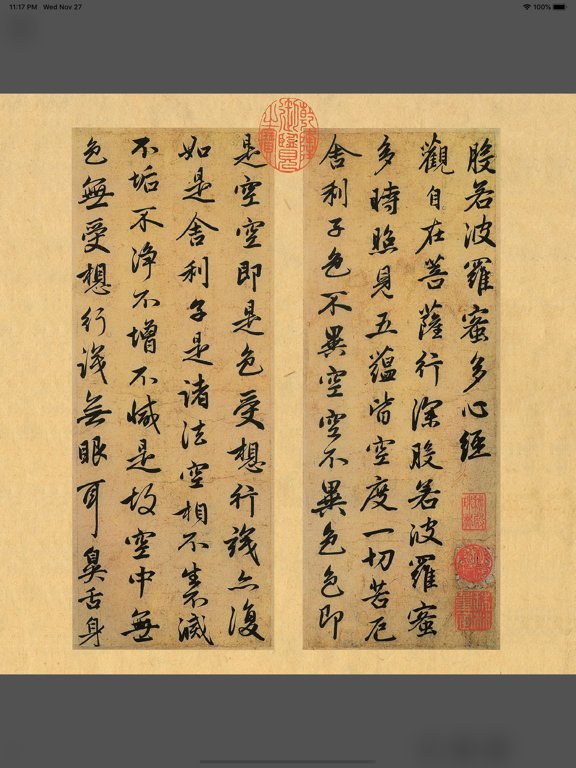 11:17 PM Wed Nov 27
100%
般若波羅蜜多心經
觀自在菩薩行深般若波羅蜜
多時照見五蘊皆空度一切苦厄
舍利子色不異空空不異色色即
是空空即是色受想行識亦復
如是舍利子是諸法空相不生不滅
不垢不淨不增不減是故空中無
色無受想行識無眼耳鼻舌身